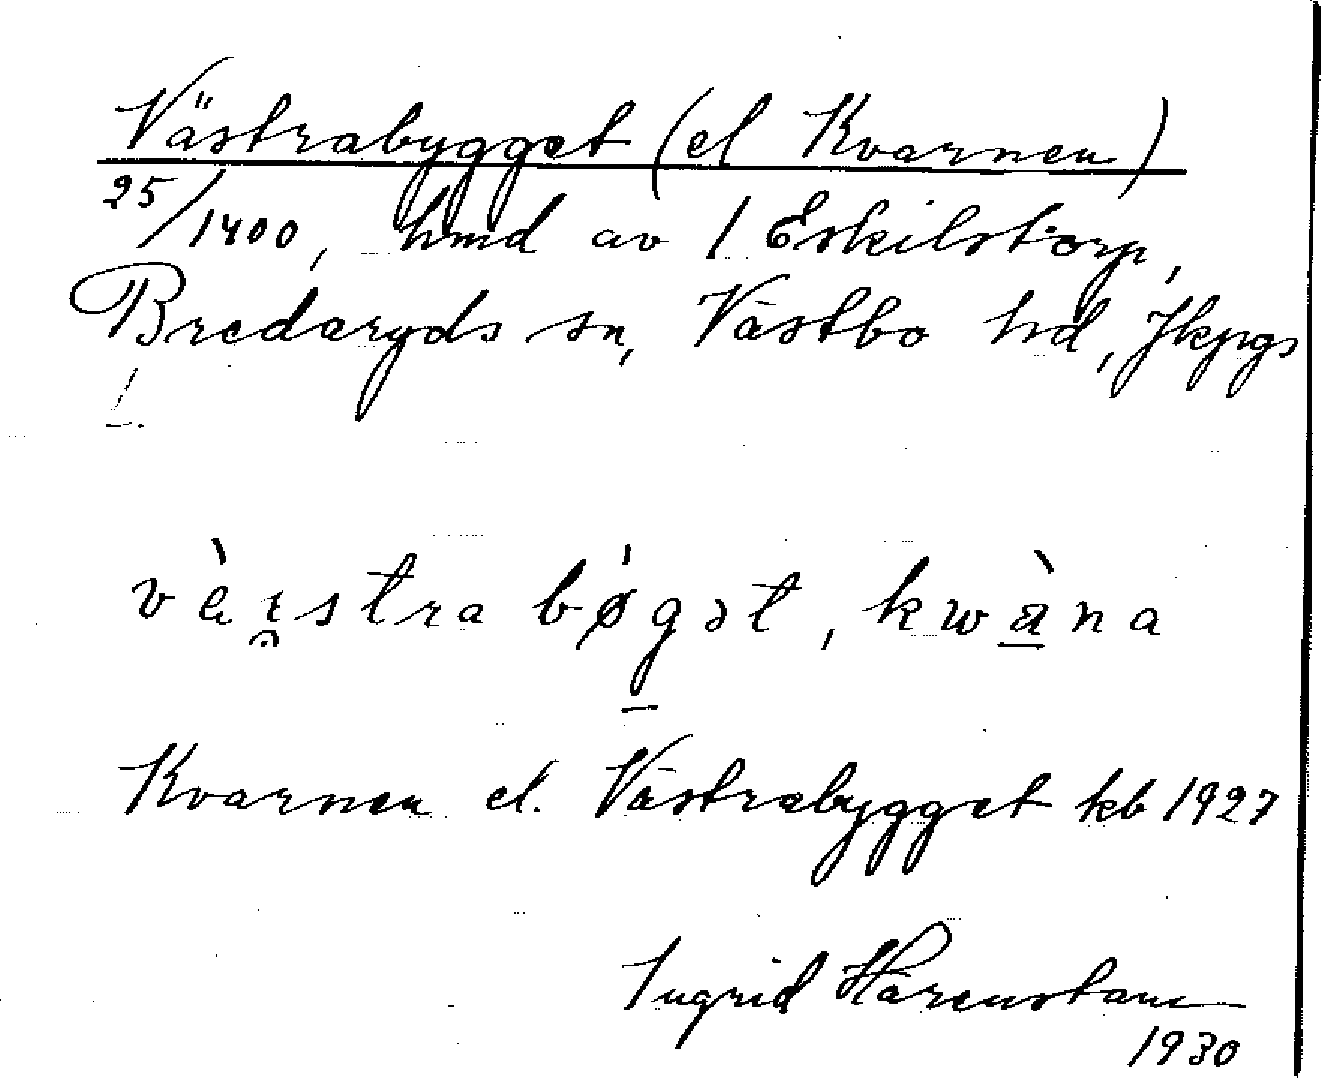 Västrabygget (el Kvarnen)
25/1400, hmd av 1 Eskilstorp,
Bredaryds sn, Västbo hd, Jkpgs
l.
vèɪ̯stra bǿgət, kwàna
Kvarnen el. Västrabygget kb 1927
Ingrid Härenstam
1930